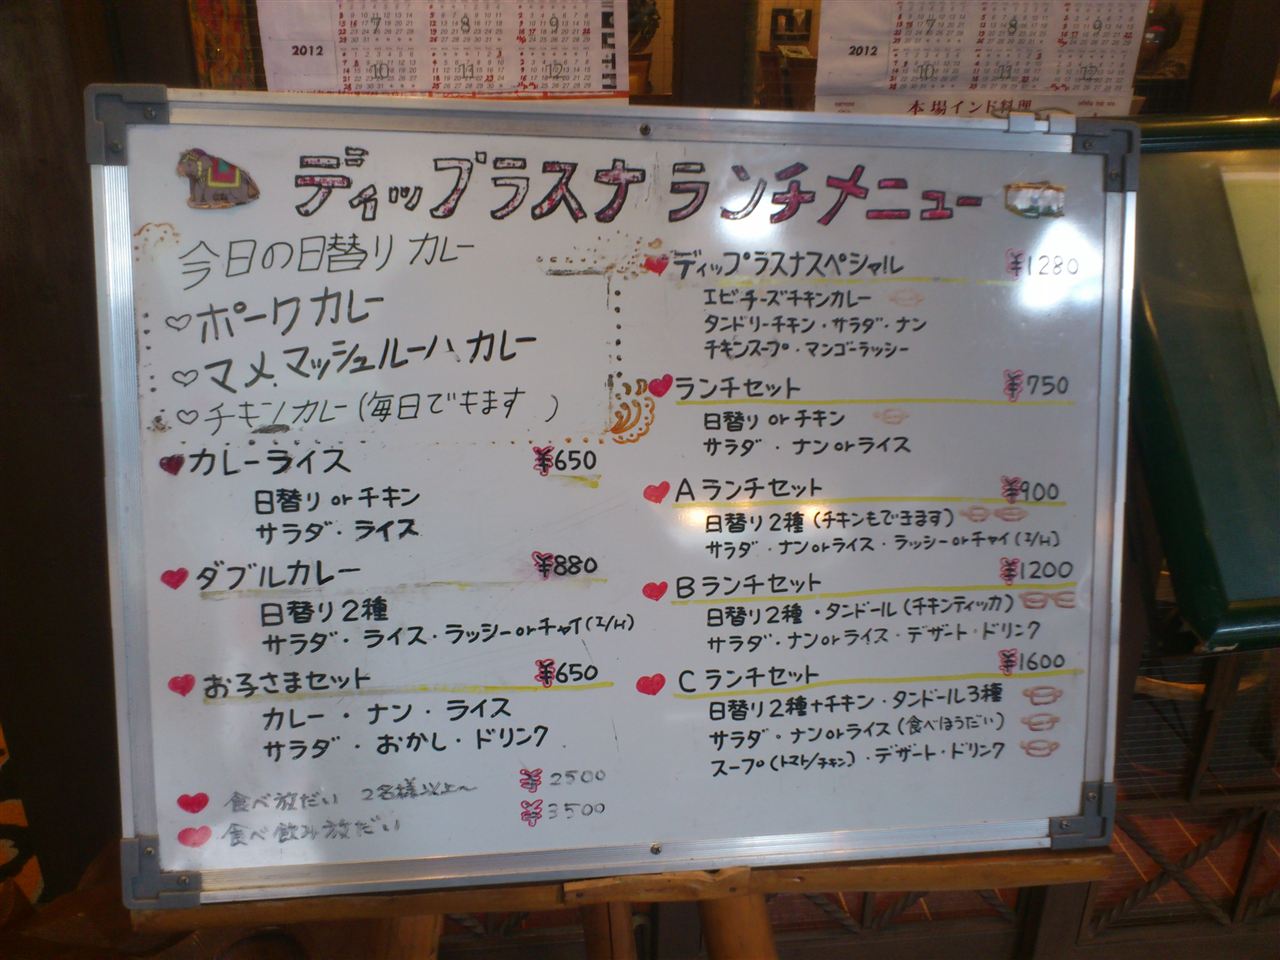 2012
2012
本場インド料理
ディップラスナ ランチメニュー
今日の日替り カレー
♡ポークカレー
♡マメ.マッシュルーム カレー
♡チキンカレー(毎日できます )
カレーライス ¥650
日替り or チキン
サラダ・ライス
ダブルカレー ¥880
日替り2種
サラダ・ライス・ラッシーorチャイ(I/H)
お子さまセット ¥650
カレー・ナン・ライス
サラダ・おかし・ドリンク
食べ放だい 2名様以上〜 ¥2500
食べ飲み放だい ¥3500
ディップラスナスペシャル ¥1280
エビチーズチキンカレー
タンドリーチキン・サラダ・ナン
チキンスープ・マンゴーラッシー
ランチセット ¥750
日替り or チキン
サラダ・ナンorライス
Aランチセット ¥900
日替り2種(チキンもできます)
サラダ・ナンorライス・ラッシーorチャイ(I/H)
Bランチセット ¥1200
日替り2種・タンドール(チキンティッカ)
サラダ・ナンorライス・デザート・ドリンク
Cランチセット ¥1600
日替り2種+チキン・タンドール3種
サラダ・ナンorライス(食べほうだい)
スープ(トマト/チキン)・デザート・ドリンク